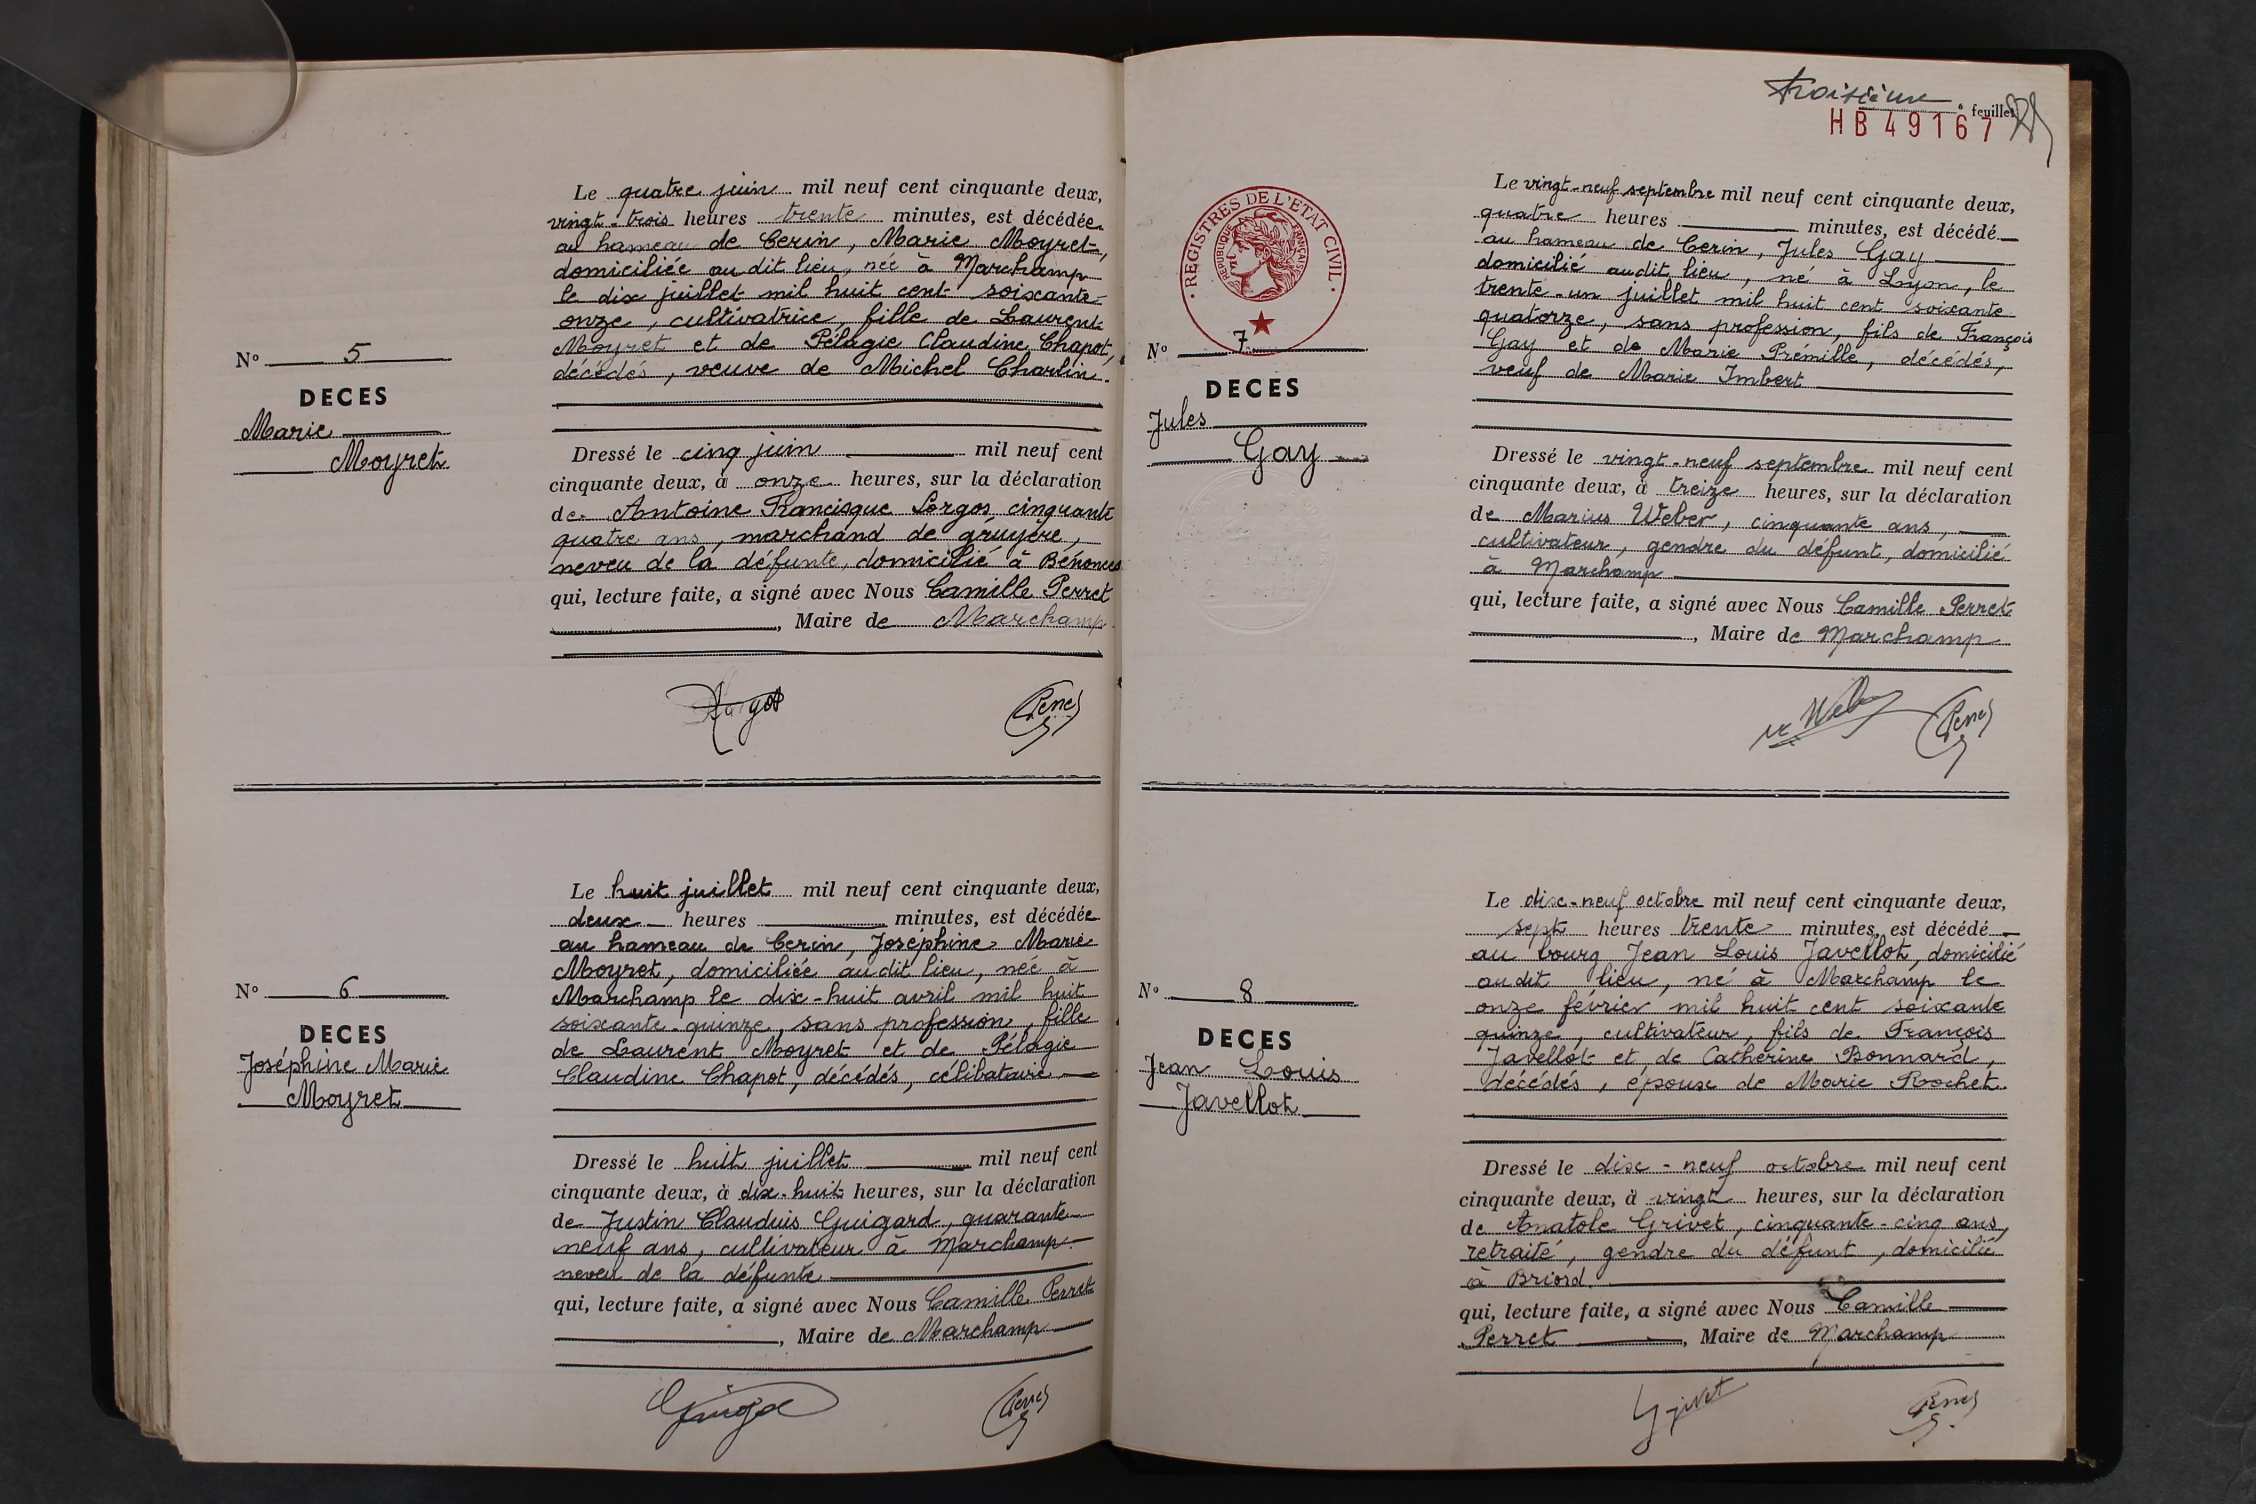 Le quatre juin mil neuf cent cinquante deux,
vingt-trois heures trente minutes, est décédée
au hameau de Cerin, Marie Moyret,
domiciliée au dit lieu, née à Marchamp
le dix juillet mil huit cent soixante-
onze, cultivatrice, fille de Laurent
Moyret et de Pélagie Claudine Chapot,
décédés, veuve de Michel Charlin.
N° 5
DECES
Marie
Moyret
Dressé le cinq juin mil neuf cent
cinquante deux, à onze heures, sur la déclaration
de Antoine Francisque Sorgos, cinquante
quatre ans, marchand de gruyère,
neveu de la défunte, domicilié à Bénonces
qui, lecture faite, a signé avec Nous Camille Perret
, Maire de Marchamp
Le huit juillet mil neuf cent cinquante deux,
deux heures minutes, est décédée
au hameau de Cerin, Joséphine Marie
Moyret, domiciliée audit lieu, née à
Marchamp le dix-huit avril mil huit
soixante-quinze, sans profession, fille
de Laurent Moyret et de Pélagie
Claudine Chapot, décédés, célibataire
N° 6
DECES
Joséphine Marie
Moyret
Dressé le huit juillet mil neuf cent
cinquante deux, à dix-huit heures, sur la déclaration
de Justin Claudius Guigard, quarante
neuf ans, cultivateur à Marchamp
neveu de la défunte
qui, lecture faite, a signé avec Nous Camille Perret
, Maire de Marchamp
troisième e feuillet
HB 49167
REGISTRES DE L'ETAT CIVIL
REPUBLIQUE FRANÇAISE
Le vingt-neuf septembre mil neuf cent cinquante deux,
quatre heures minutes, est décédé
au hameau de Cerin, Jules Gay
domicilié audit lieu, né à Lyon, le
trente-un juillet mil huit cent soixante
quatorze, sans profession, fils de François
Gay et de Marie Prémille, décédés,
veuf de Marie Imbert
N° 7
DECES
Jules
Gay
Dressé le vingt-neuf septembre mil neuf cent
cinquante deux, à treize heures, sur la déclaration
de Marius Weber, cinquante ans,
cultivateur, gendre du défunt, domicilié
à Marchamp
qui, lecture faite, a signé avec Nous Camille Perret
, Maire de Marchamp
Le dix-neuf octobre mil neuf cent cinquante deux,
sept heures trente minutes, est décédé
au bourg Jean Louis Javellot, domicilié
audit lieu, né à Marchamp le
onze février mil huit cent soixante
quinze, cultivateur, fils de François
Javellot et de Catherine Bonnard,
décédés, époux de Marie Rochet.
N° 8
DECES
Jean Louis
Javellot
Dressé le dix-neuf octobre mil neuf cent
cinquante deux, à vingt heures, sur la déclaration
de Anatole Grivet, cinquante-cinq ans,
retraité, gendre du défunt, domicilié
à Briord.
qui, lecture faite, a signé avec Nous Camille
Perret, Maire de Marchamp
Grivet